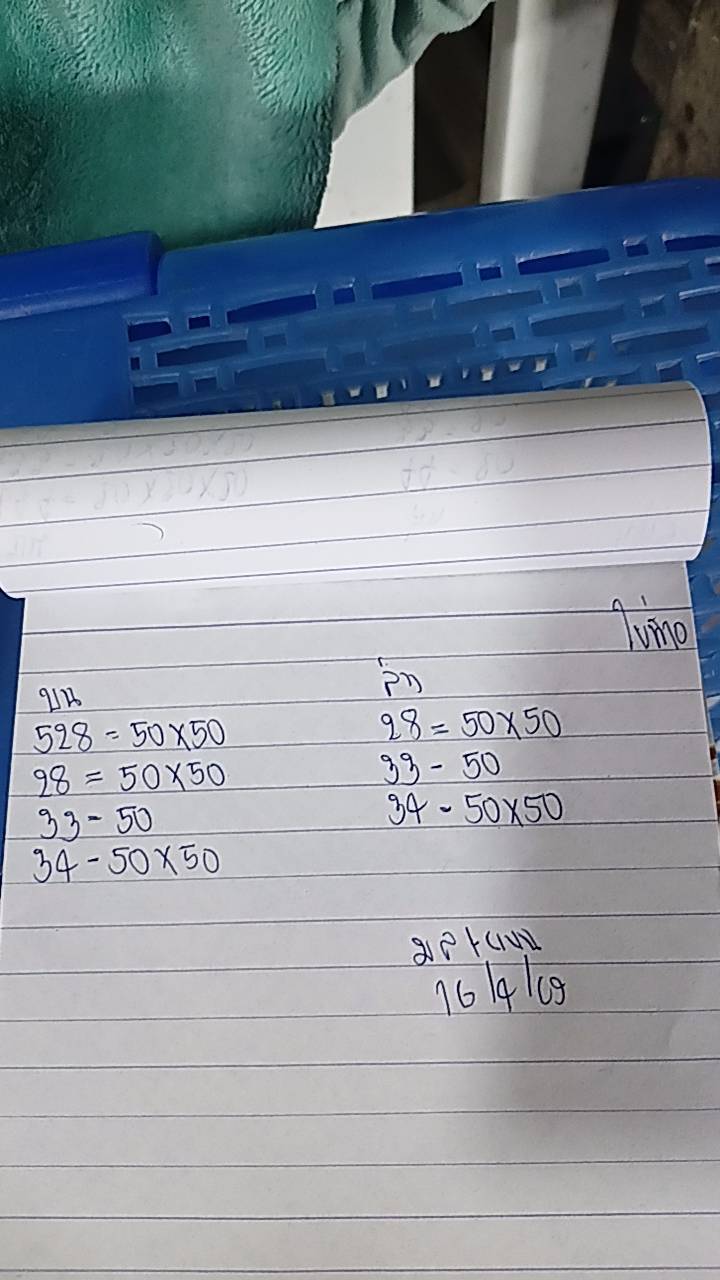 บน
528 = 50X50
28 = 50X50
33 - 50
34 - 50X50
ล่าง
28 = 50X50
33 - 50
34 - 50X50
16/4/69